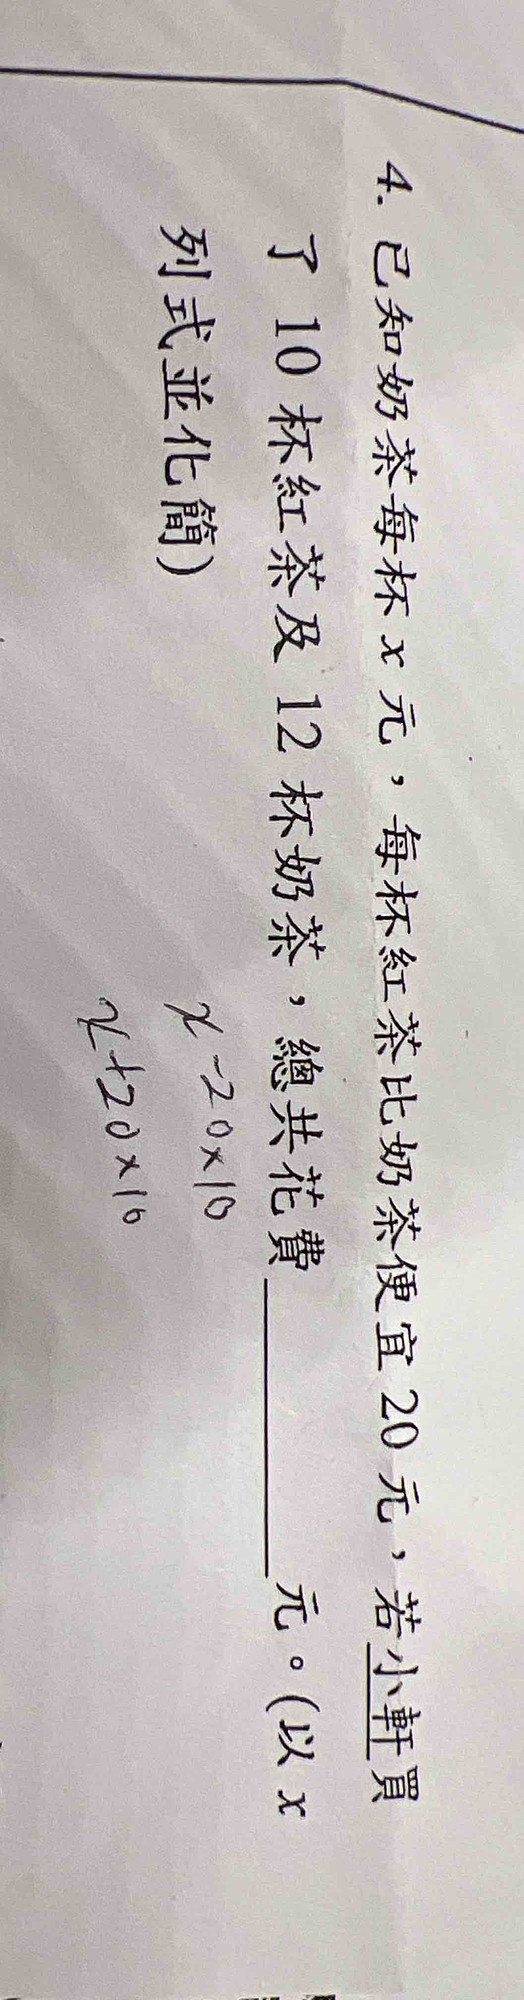 4. 已知奶茶每杯 x 元，每杯紅茶比奶茶便宜 20 元，若小軒買
了 10 杯紅茶及 12 杯奶茶，總共花費__________元。(以 x
列式並化簡)
x-20×10
x+20×10